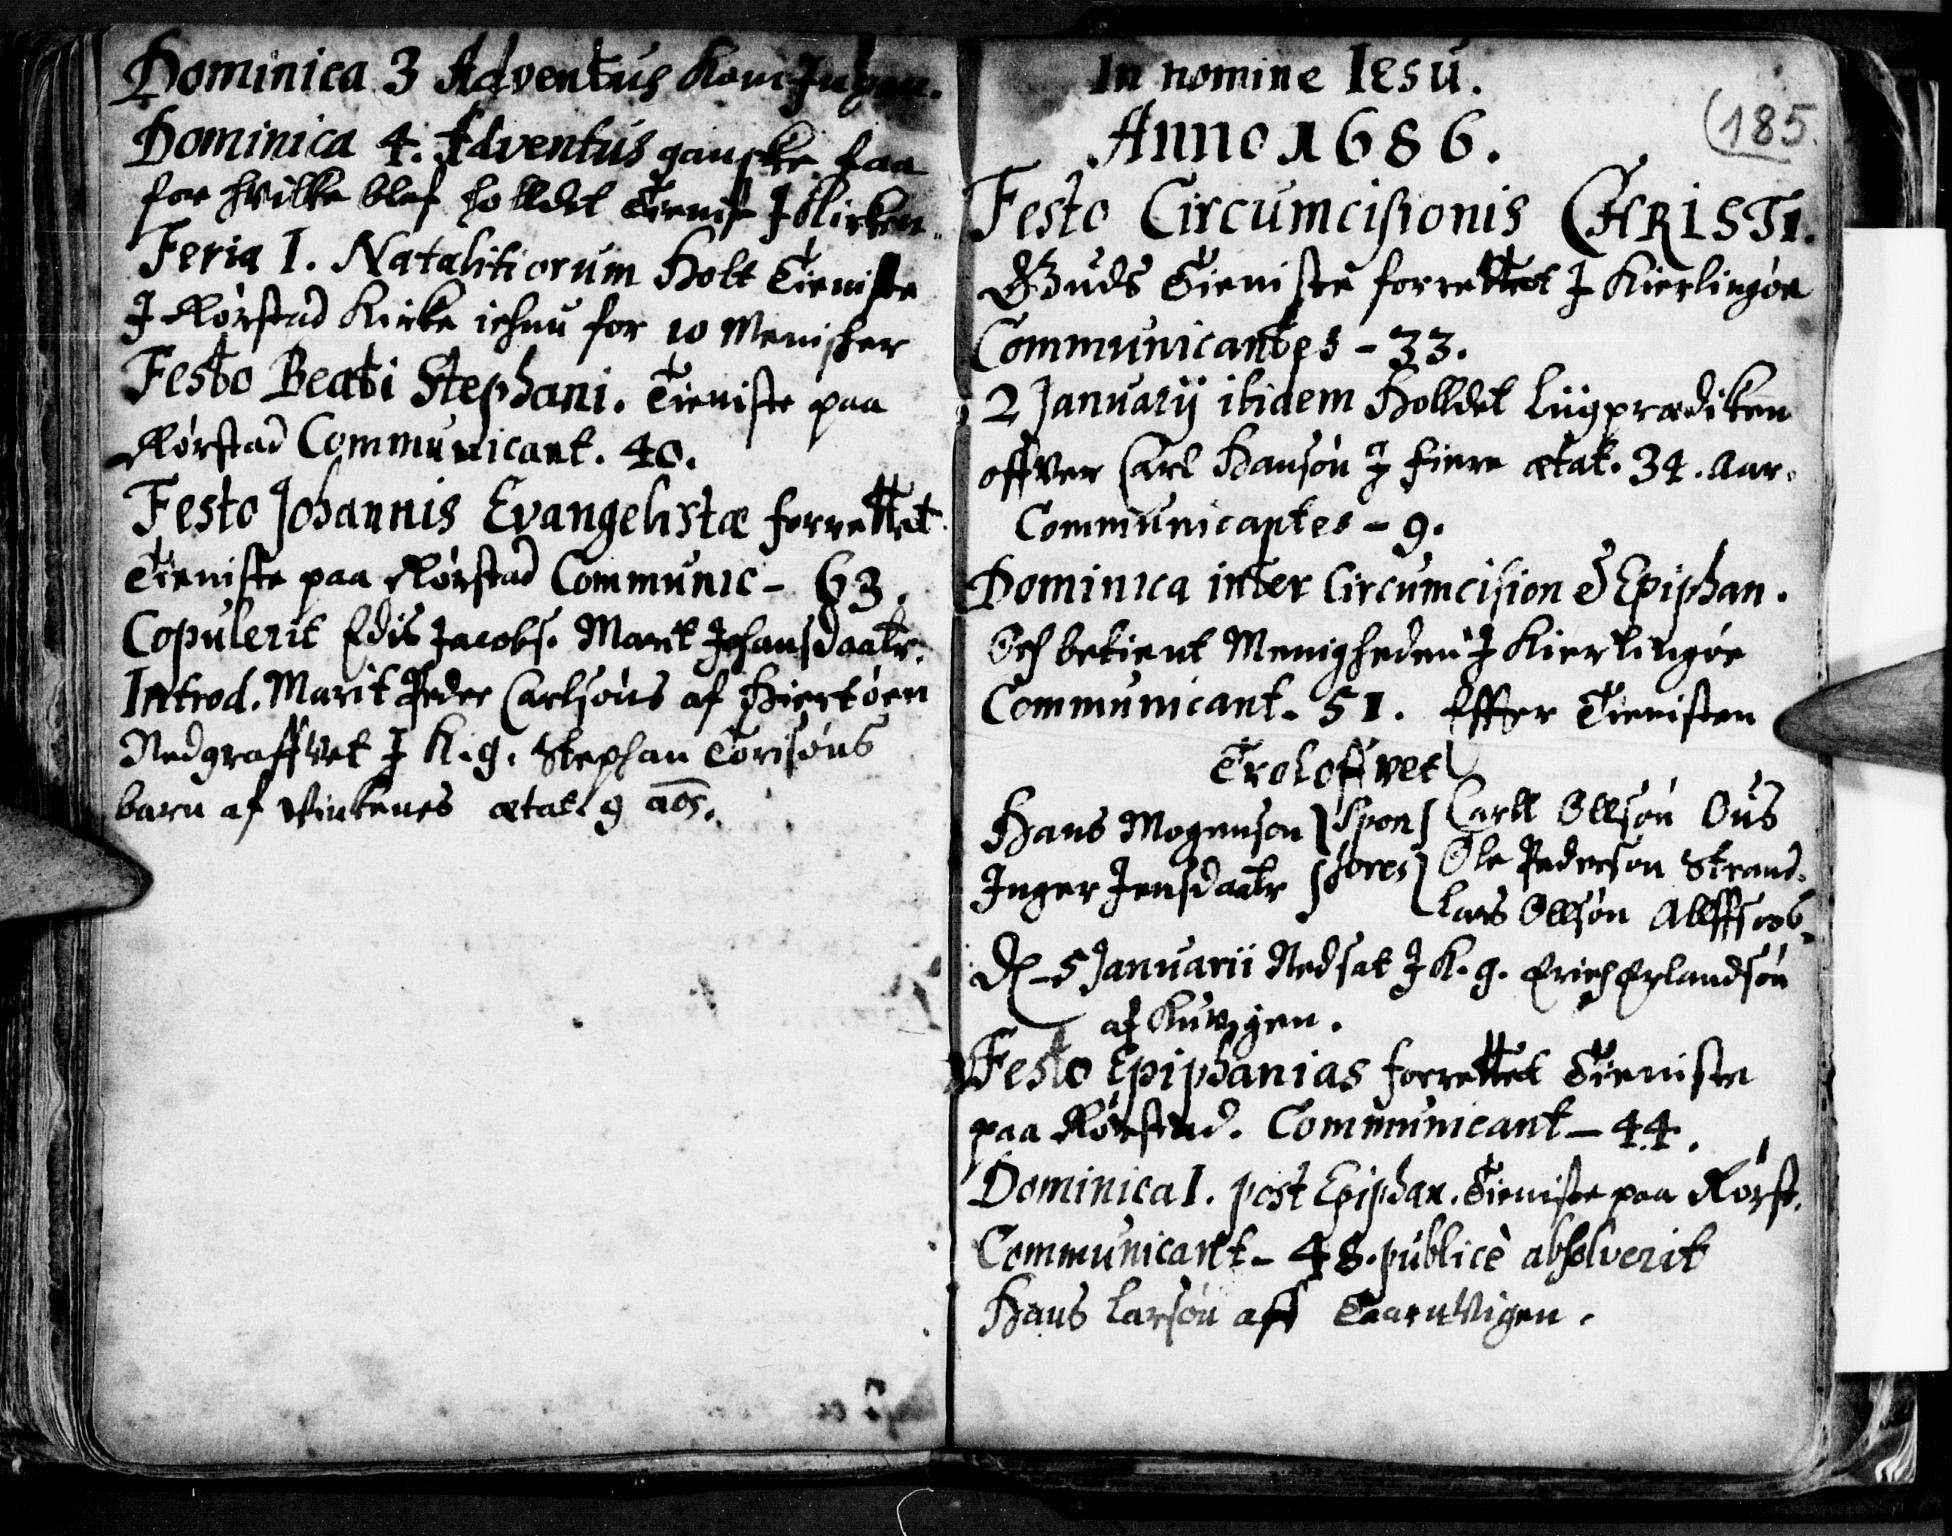 Dominica 3 Adventus kom Ingen.
Dominica 4. Adventus ganske faa
for hvilke blef holldet Tienist J Kirken.
Feria I. Natalitiorum Holt Tieniste
J Rørstad Kirke ichnu for 10 Menischer
Festo Beati Stephani. Tieniste paa
Rørstad Communicant. 40.
Festo Johannis Evangelistæ forrettet
Tieniste paa Rørstad Communic - 63.
Copulerit Edis Jacobs. Marit Johansdaatr.
Introd. Marit Peder Carlsøns af Hiertøen
Nedgraffvet J K. g. Stephan Torisøns
barn af Vinkenes ætat 9 aos.
In nomine Iesu.
(185.
Anno 1686.
Festo Circumcisionis CHRISTI.
Guds Tieniste forrettet J Kierlingøe
Communicantes - 33.
2 Januarij ibidem Holldet Liigprædiken
offver Carl Hansøn J Fiere ætat. 34. Aar.
Communicantes - 9.
Dominica inter Circumcision & Epiphan.
Och betient Menigheden J Kierlingøe
Communicant. 51. Effter Tienisten
Troloffvet
Hans Mogensøn } Spon { Carll Ollsøn Ous
Inger Jensdaatr } sores { Ole Pedersøn Strand.
Lars Ollsøn
D. 5 Januarii Nedsat J K. g. Erich Erlandsøn
af
Festo Epiphanias forrettet Tieniste
paa Rørstad. Communicant - 44.
Dominica I. post Epiphan. Tieniste paa Rørst.
Communicant - 48. publicè absolverit
Hans Larsøn aff Taarnvigen.